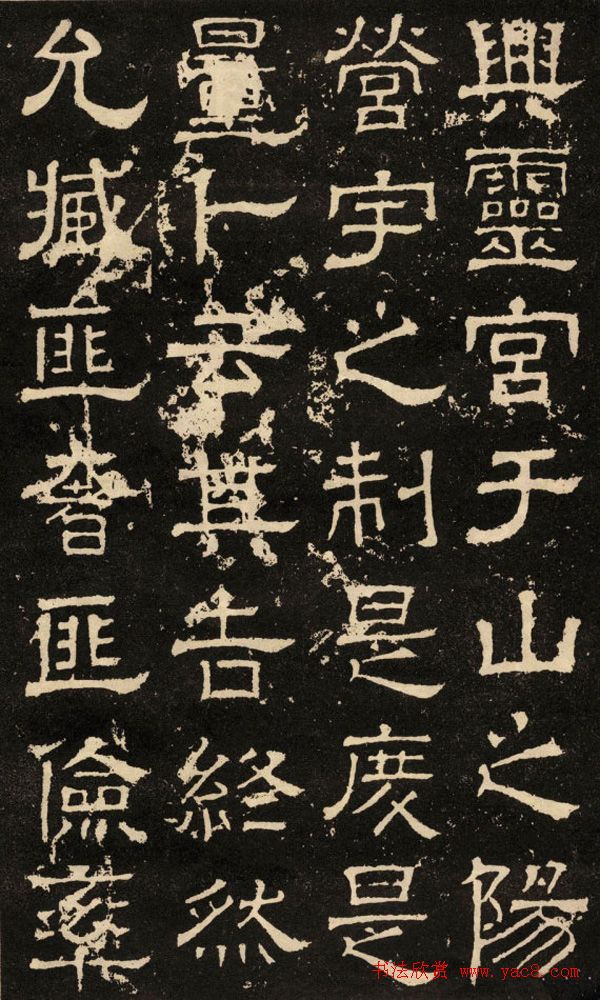 興靈宮于山之陽
營宇之制是度是
量卜云其吉終然
允臧匪奢匪儉率
书法欣赏 www.yac8.com